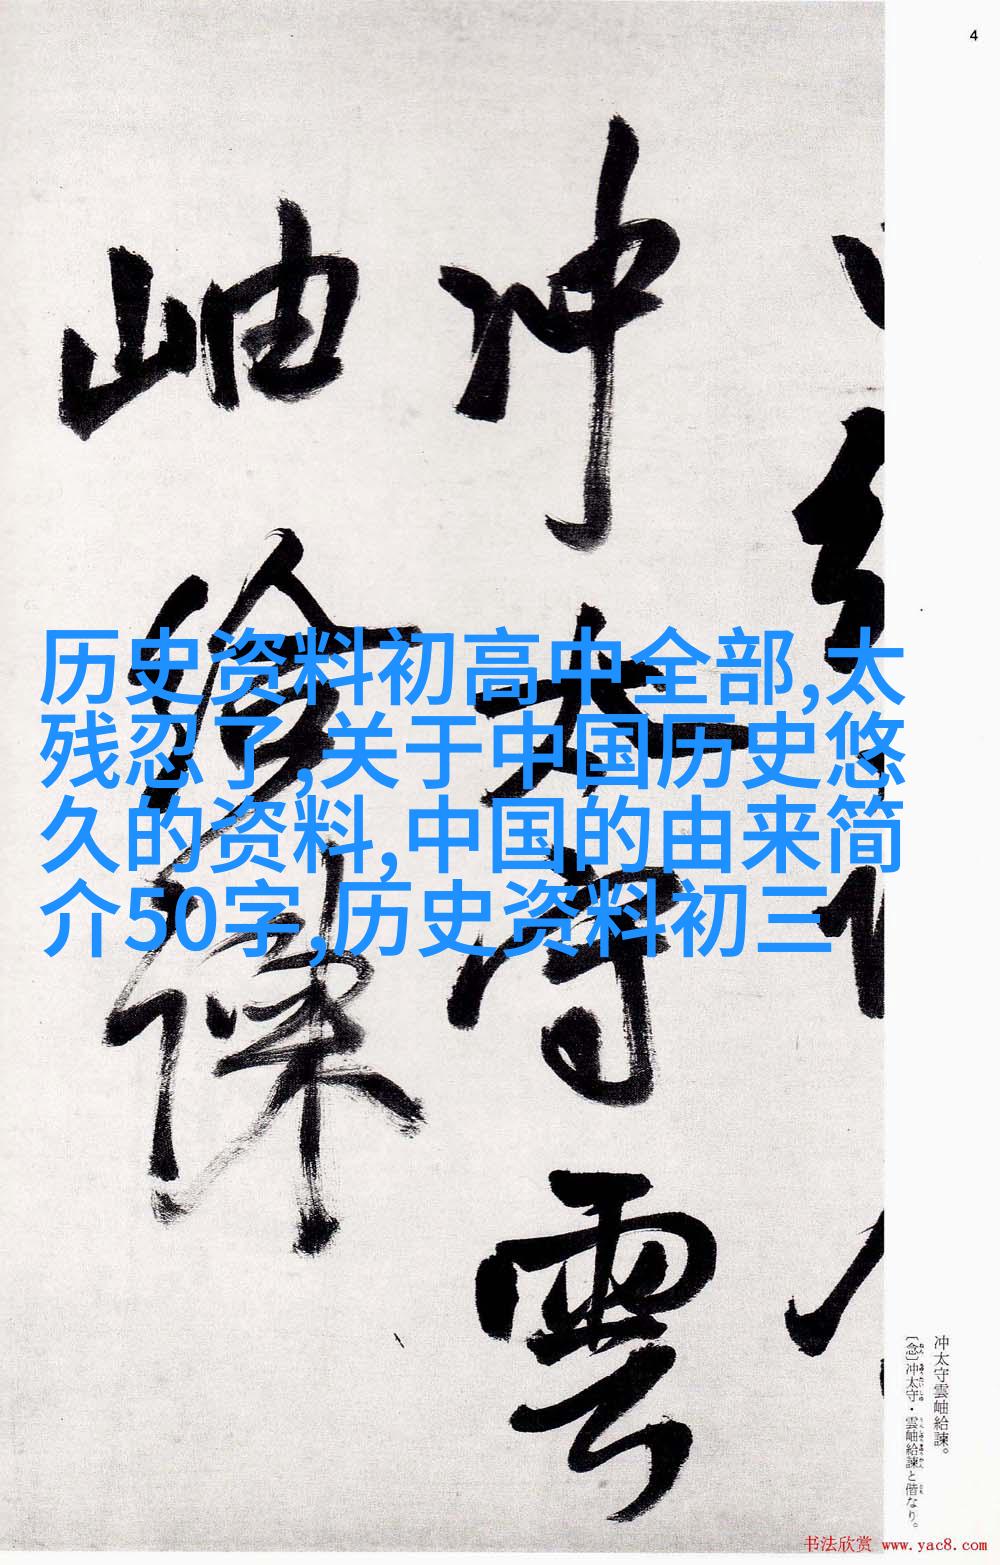 4
冲太守雲
岫給諫
历史资料初高中全部,太
残忍了,关于中国历史悠
久的资料,中国的由来简
介50字,历史资料初三
冲太守雲岫給諫。
〔念〕冲太守・雲岫給諫と偕なり。
书法欣赏 www.yac8.com